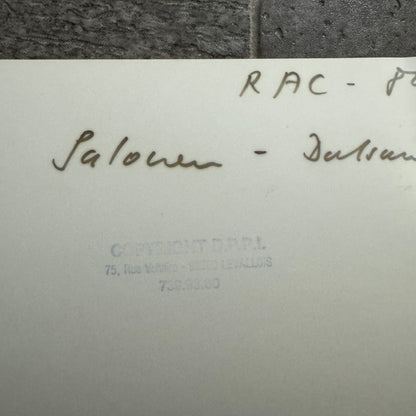 RAC - 80
Salonen - Datsun
COPYRIGHT D.P.P.I.
75, Rue Voltaire - 92300 LEVALLOIS
739.93.60